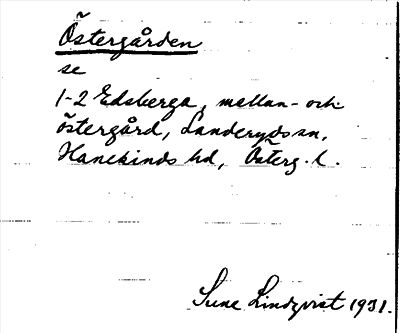 Östergården
se
1-2 Edsberga, mellan- och
östergård, Landeryds sn,
Hanekinds hd, Österg. l.
Sune Lindqvist 1931.